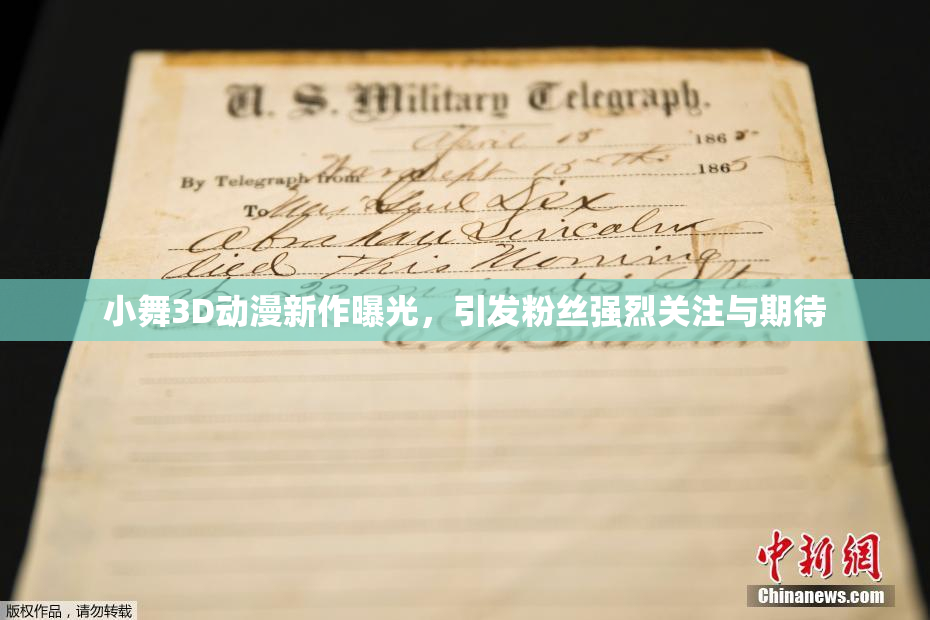 U. S. Military Telegraph.
April 15 1865
By Telegraph from War Dept 15th 1865
To Maj Genl Dix
Abraham Lincoln
died This Morning
22 minutes after
小舞3D动漫新作曝光，引发粉丝强烈关注与期待
中新网
Chinanews.com
版权作品，请勿转载